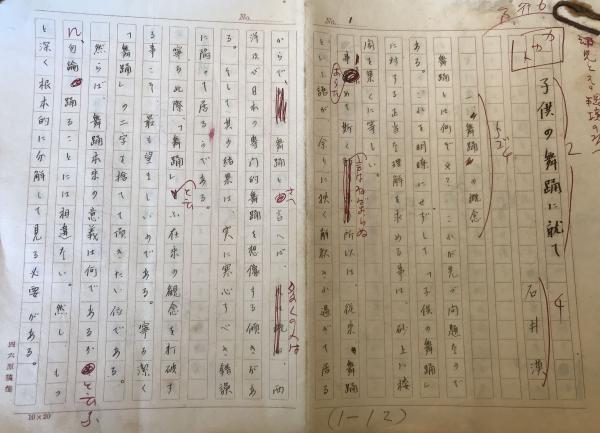 No. 1
子供の舞踊に就て
石井 漠
一、舞踊の概念
舞踊とは何ぞや？これが先づ問題なのである。
これを明瞭にせずして「子供の舞踊」
に対する正当な理解を求める事は、砂上に楼
閣を築くに等しい。
事改めて斯く言はねばならぬ所以は、従来、舞踊
と云ふ語が余りに狭く解釈され過ぎて居る
No.
からで、舞踊と さへ言へば、多くの人は 西
洋及び日本の専門的舞踊を想像する傾きがあ
る。そして其の結果は、実に寒心すべき錯誤
に陥って居るのである。
寧ろ此際、「舞踊」と云ふ在来の観念を打破す
る事こそ最も望ましいのである。寧ろ潔く
「舞踊」の二字を捨てて頂きたい位である。
然らば、舞踊本来の意義は何であるかと云ふ
に、勿論、踊ることには相違ない。然し、もつ
と深く根本的に分解して見る必要がある。
四六原稿箋
10×20
(1-12)